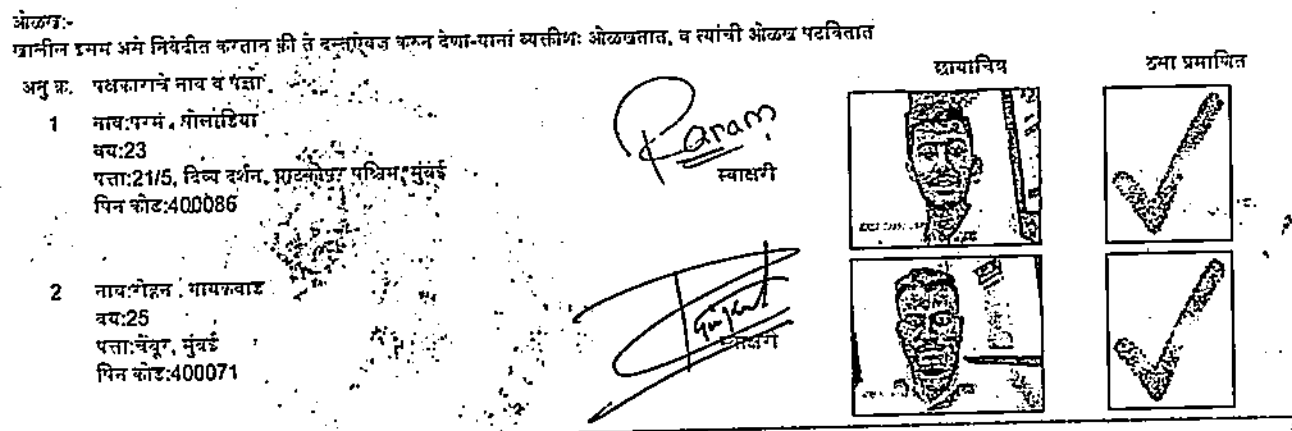 ओळख:-
खालील इसम असे निवेदीत करतात की ते दस्तऐवज करुन देणा-यानां व्यक्तीशः ओळखतात, व त्यांची ओळख पटवितात
अनु क्र. पक्षकाराचे नाव व पत्ता छायाचित्र ठसा प्रमाणित
1 नाव:परम . गोलांडिया
वय:23
पत्ता:21/5, दिव्य दर्शन, घाटकोपर पश्चिम, मुंबई
पिन कोड:400086
Param
स्वाक्षरी
2 नाव:रोहन . गायकवाड
वय:25
पत्ता:चेंबूर, मुंबई
पिन कोड:400071
स्वाक्षरी